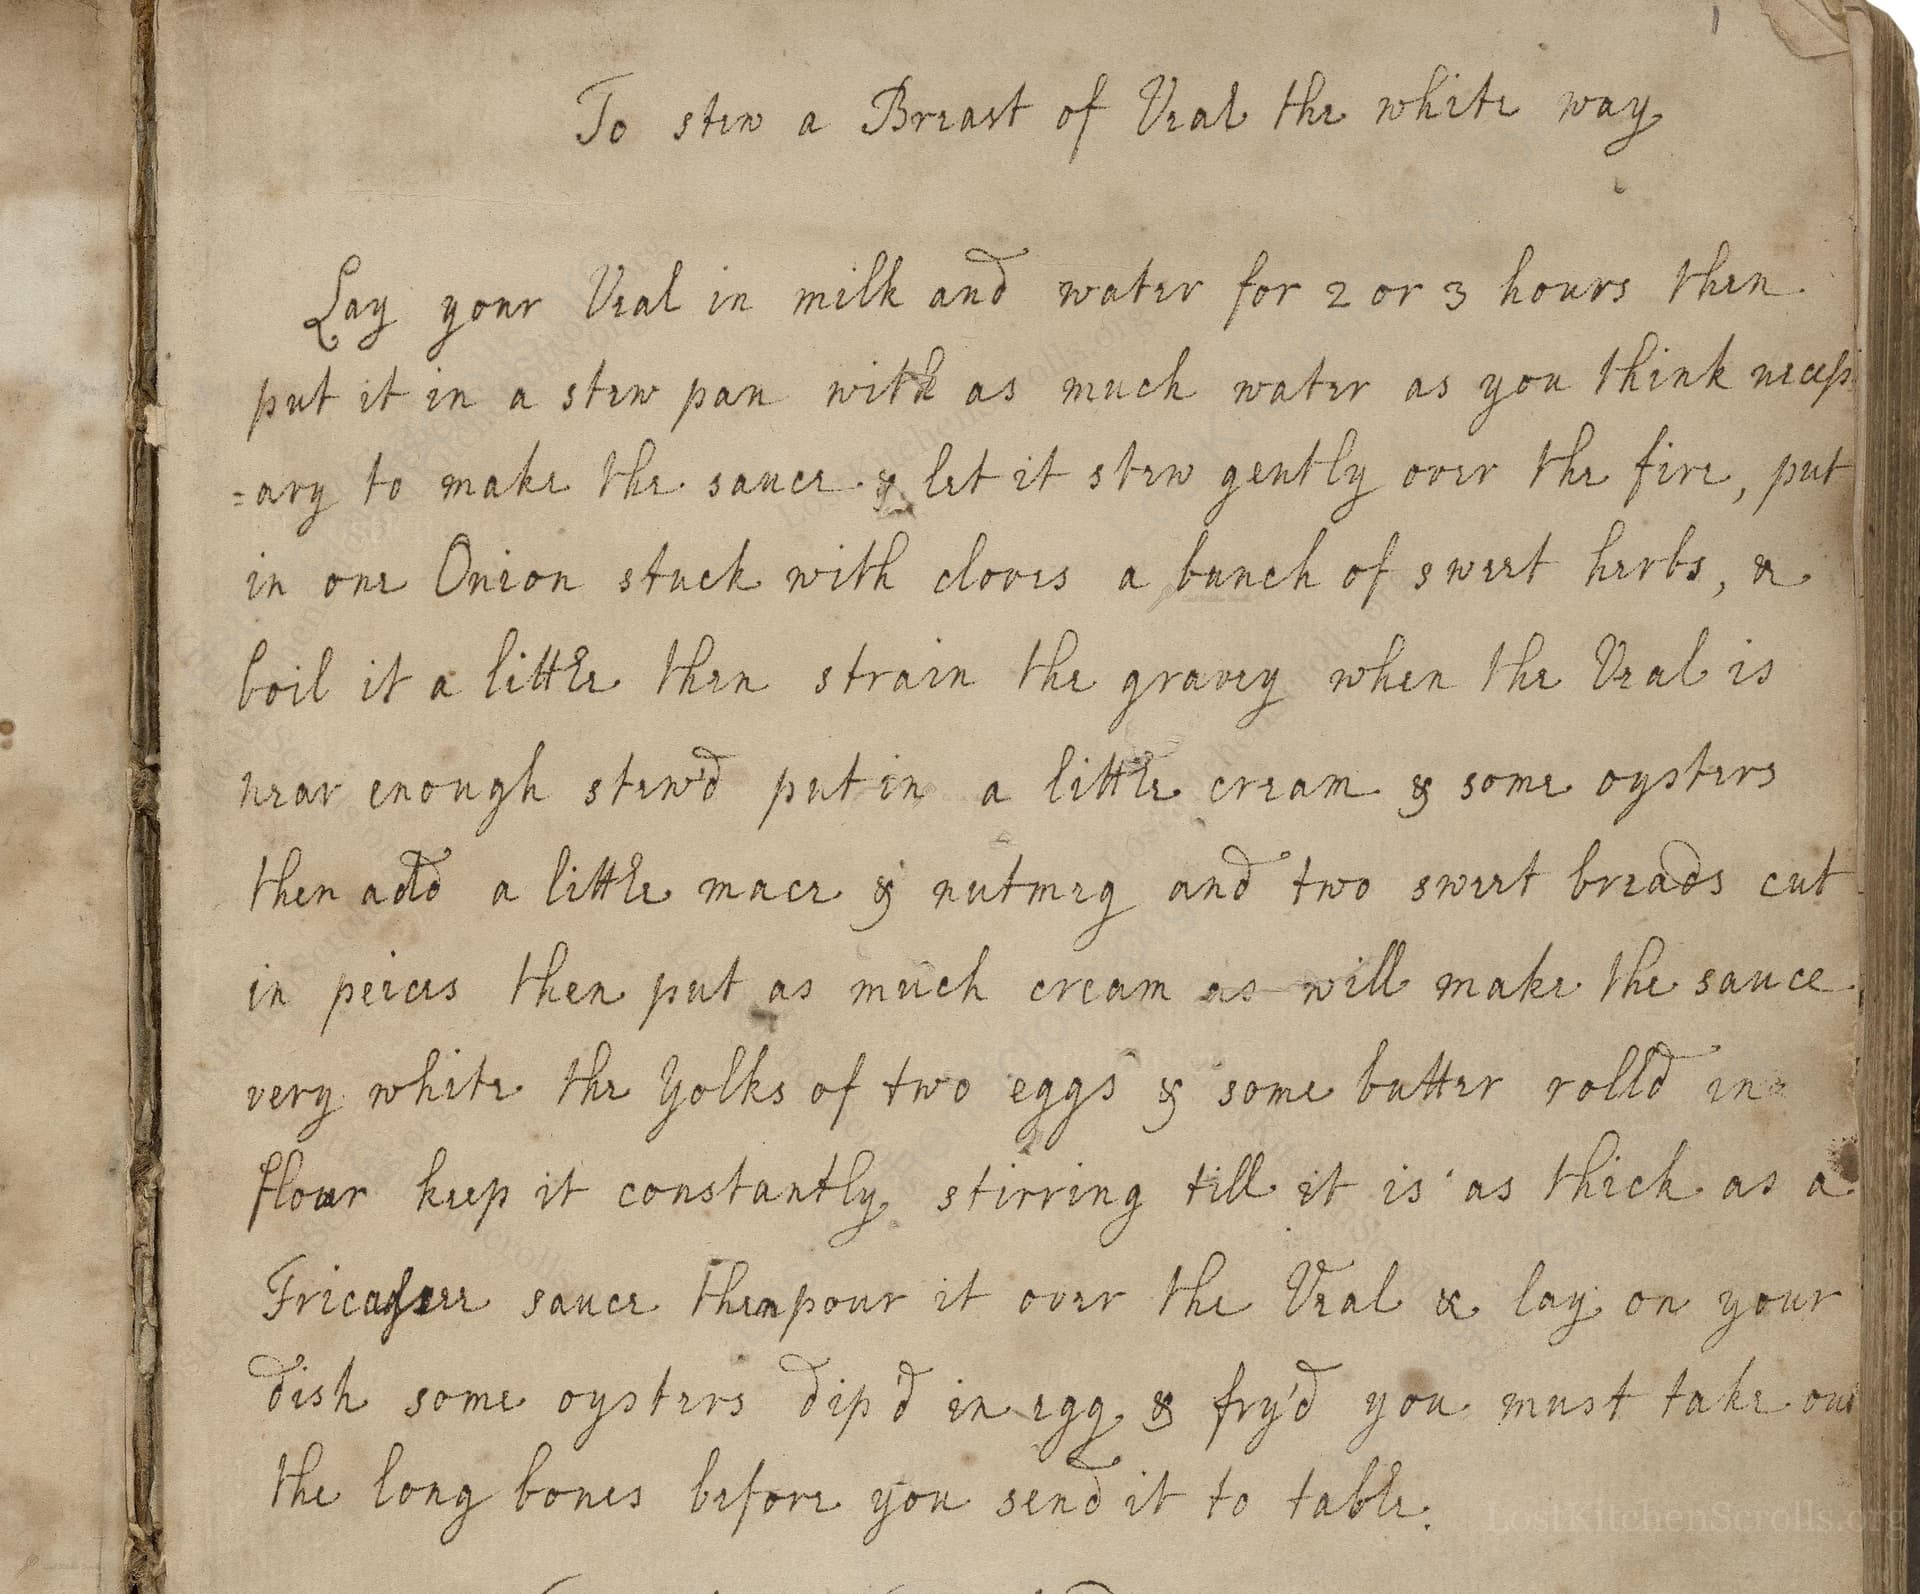 1
To stew a Breast of Veal the white way
Lay your Veal in milk and water for 2 or 3 hours then
put it in a stew pan with as much water as you think necess
=ary to make the sauce & let it stew gently over the fire, put
in one Onion stuck with cloves a bunch of sweet herbs, &
boil it a little then strain the gravey when the Veal is
near enough stew'd put in a little cream & some oysters
then add a little mace & nutmeg and two sweet breads cut
in peices then put as much cream as will make the sauce
very white the Yolks of two eggs & some butter roll'd in
flour keep it constantly stirring till it is as thick as a
Fricassee sauce then pour it over the Veal & lay on your
dish some oysters dip'd in egg & fry'd you must take out
the long bones before you send it to table.
LostKitchenScrolls.org